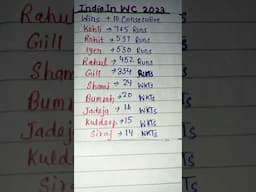 India In WC 2023
Wins → 10 Consecutive
Kohli → 765 Runs
Rohit → 597 Runs
Iyer → 530 Runs
Rahul → 452 Runs
Gill → 354 Runs
Shami → 24 WKTs
Bumrah → 20 WKTs
Jadeja → 16 WKTs
Kuldeep → 15 WKTs
Siraj → 14 WKTs